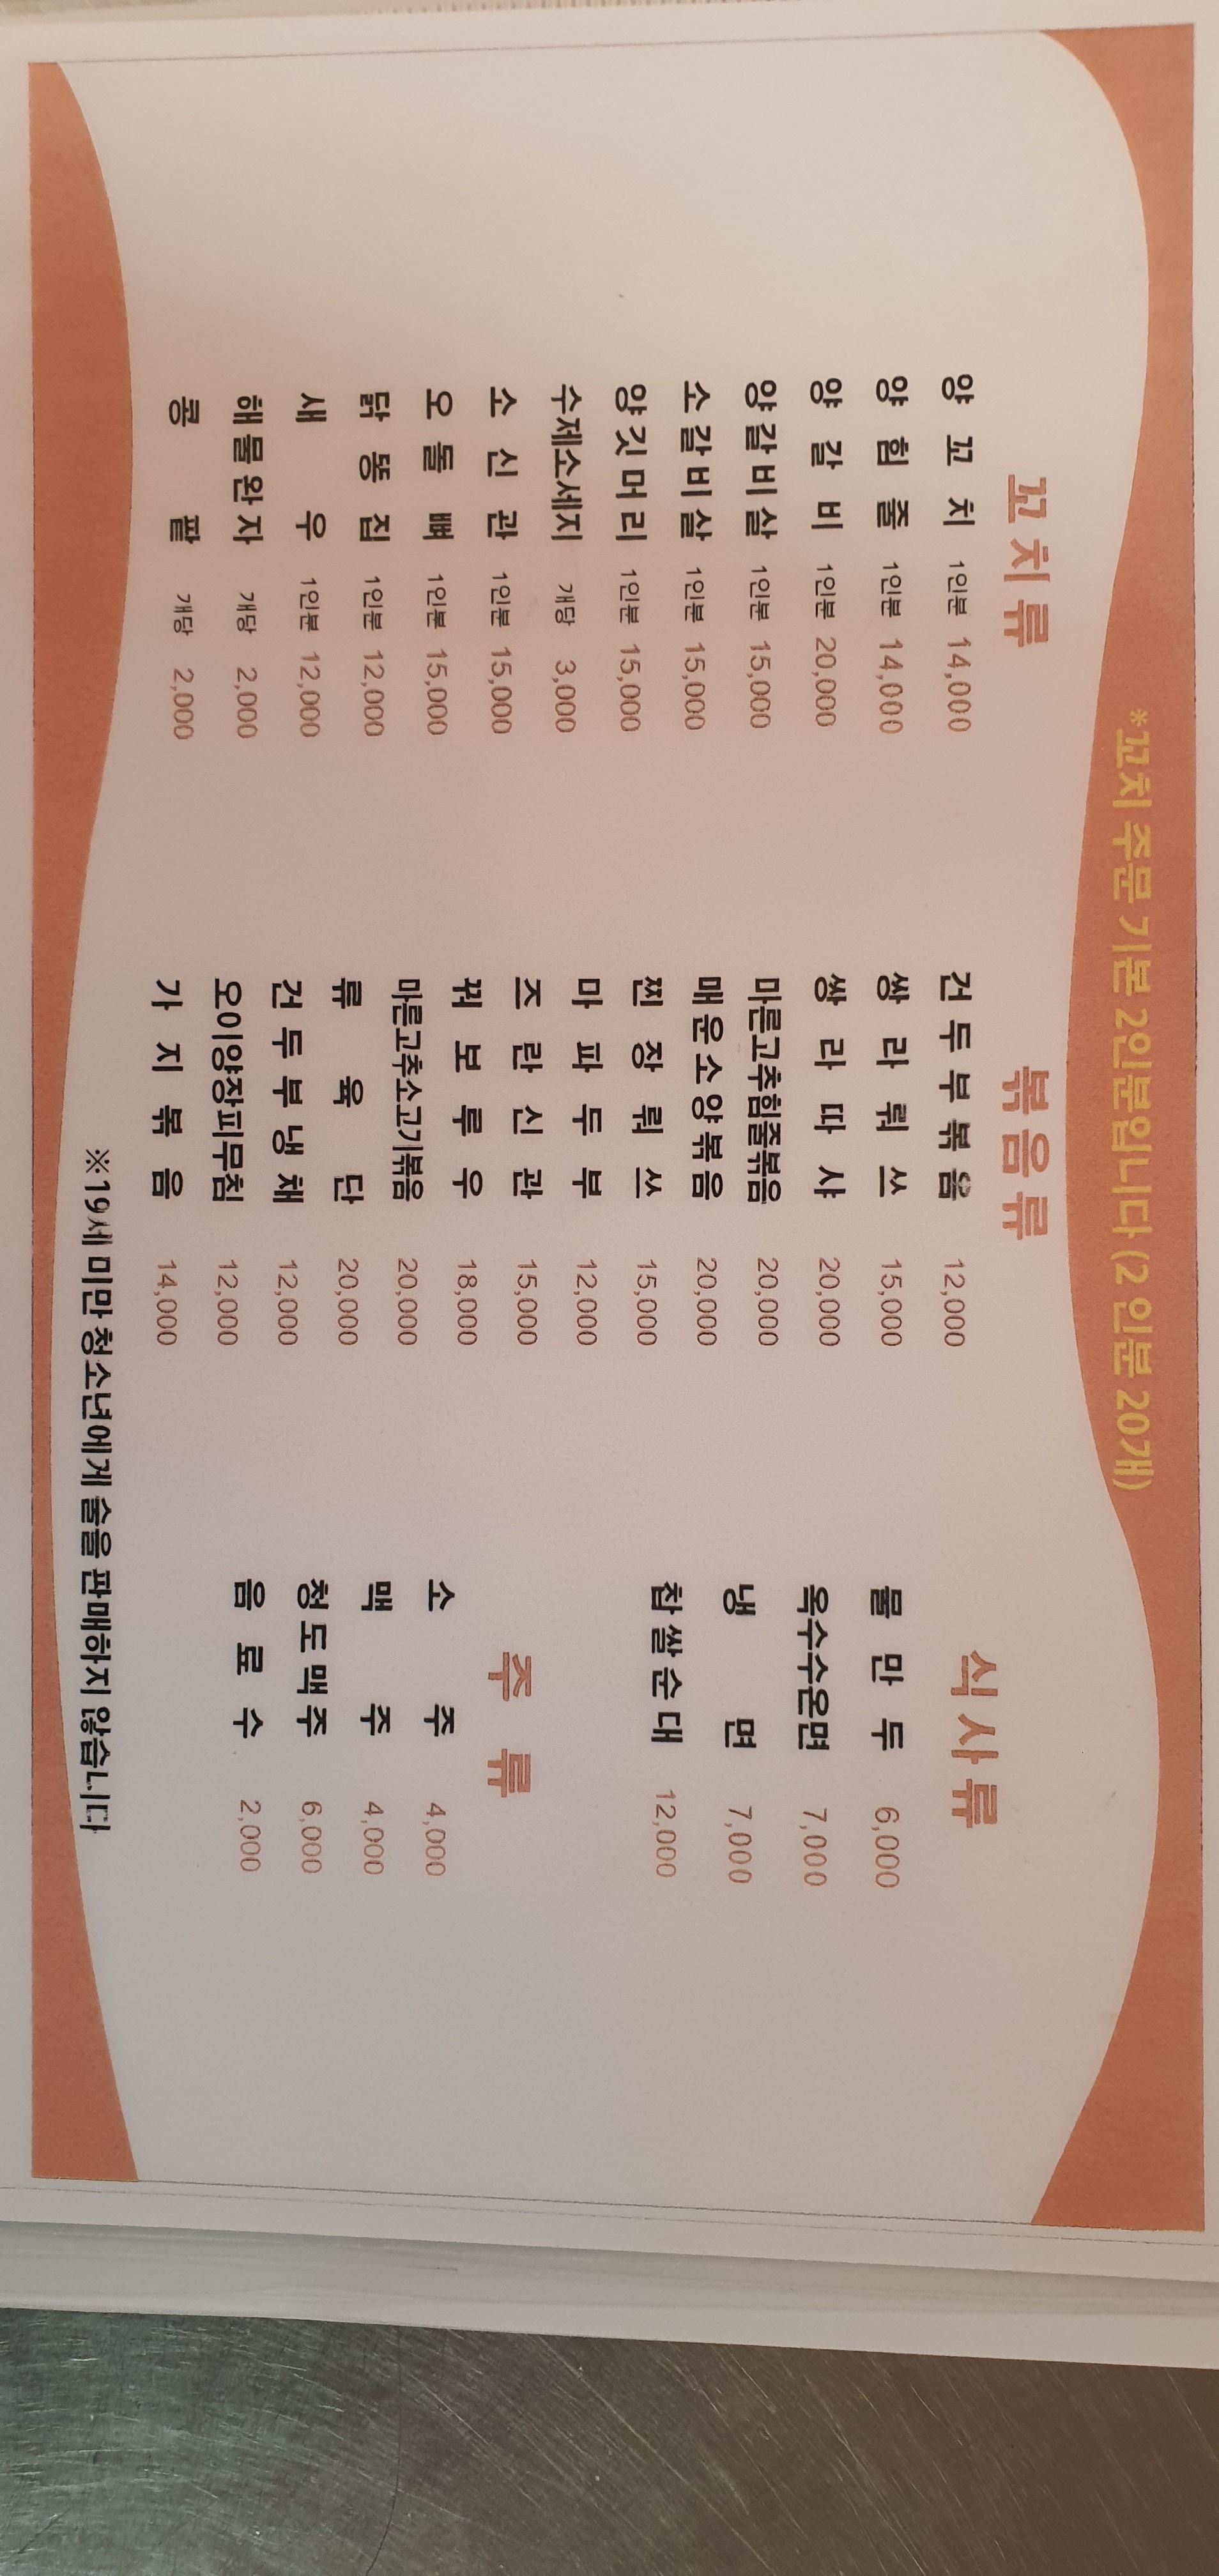 *꼬치 주문 기본 2인분입니다 (2 인분 20개)
꼬치류
양 꼬 치 1인분 14,000
양 힘 줄 1인분 14,000
양 갈 비 1인분 20,000
양갈비살 1인분 15,000
소갈비살 1인분 15,000
양깃머리 1인분 15,000
수제소세지 개당 3,000
소 신 관 1인분 15,000
오 돌 뼈 1인분 15,000
닭 똥 집 1인분 12,000
새 우 1인분 12,000
해물완자 개당 2,000
콩 팥 개당 2,000
볶음류
건두부볶음 12,000
쌍 라 뤄 쓰 15,000
쌍 라 따 샤 20,000
마른고추힘줄볶음 20,000
매운소양볶음 20,000
찐 장 뤄 쓰 15,000
마 파 두 부 12,000
즈 란 신 관 15,000
꿔 보 루 우 18,000
마른고추소고기볶음 20,000
류 육 단 20,000
건두부냉채 12,000
오이양장피무침 12,000
가 지 볶 음 14,000
식사류
물 만 두 6,000
옥수수온면 7,000
냉 면 7,000
찹쌀순대 12,000
주 류
소 주 4,000
맥 주 4,000
청도맥주 6,000
음 료 수 2,000
※19세 미만 청소년에게 술을 판매하지 않습니다